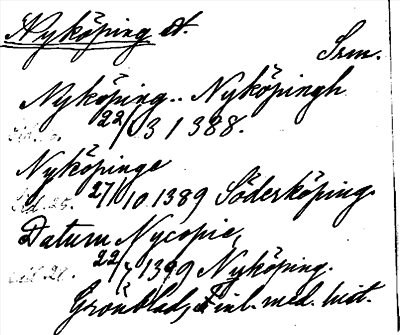 Nyköping st.
Srm.
Nyköping.. Nyköpingh
22/3 1388.
Nyköpinge
27/10 1389 Söderköping.
Datum Nycopie,
22/7 1399 Nyköping.
Grönblad, Finl. med. hist.